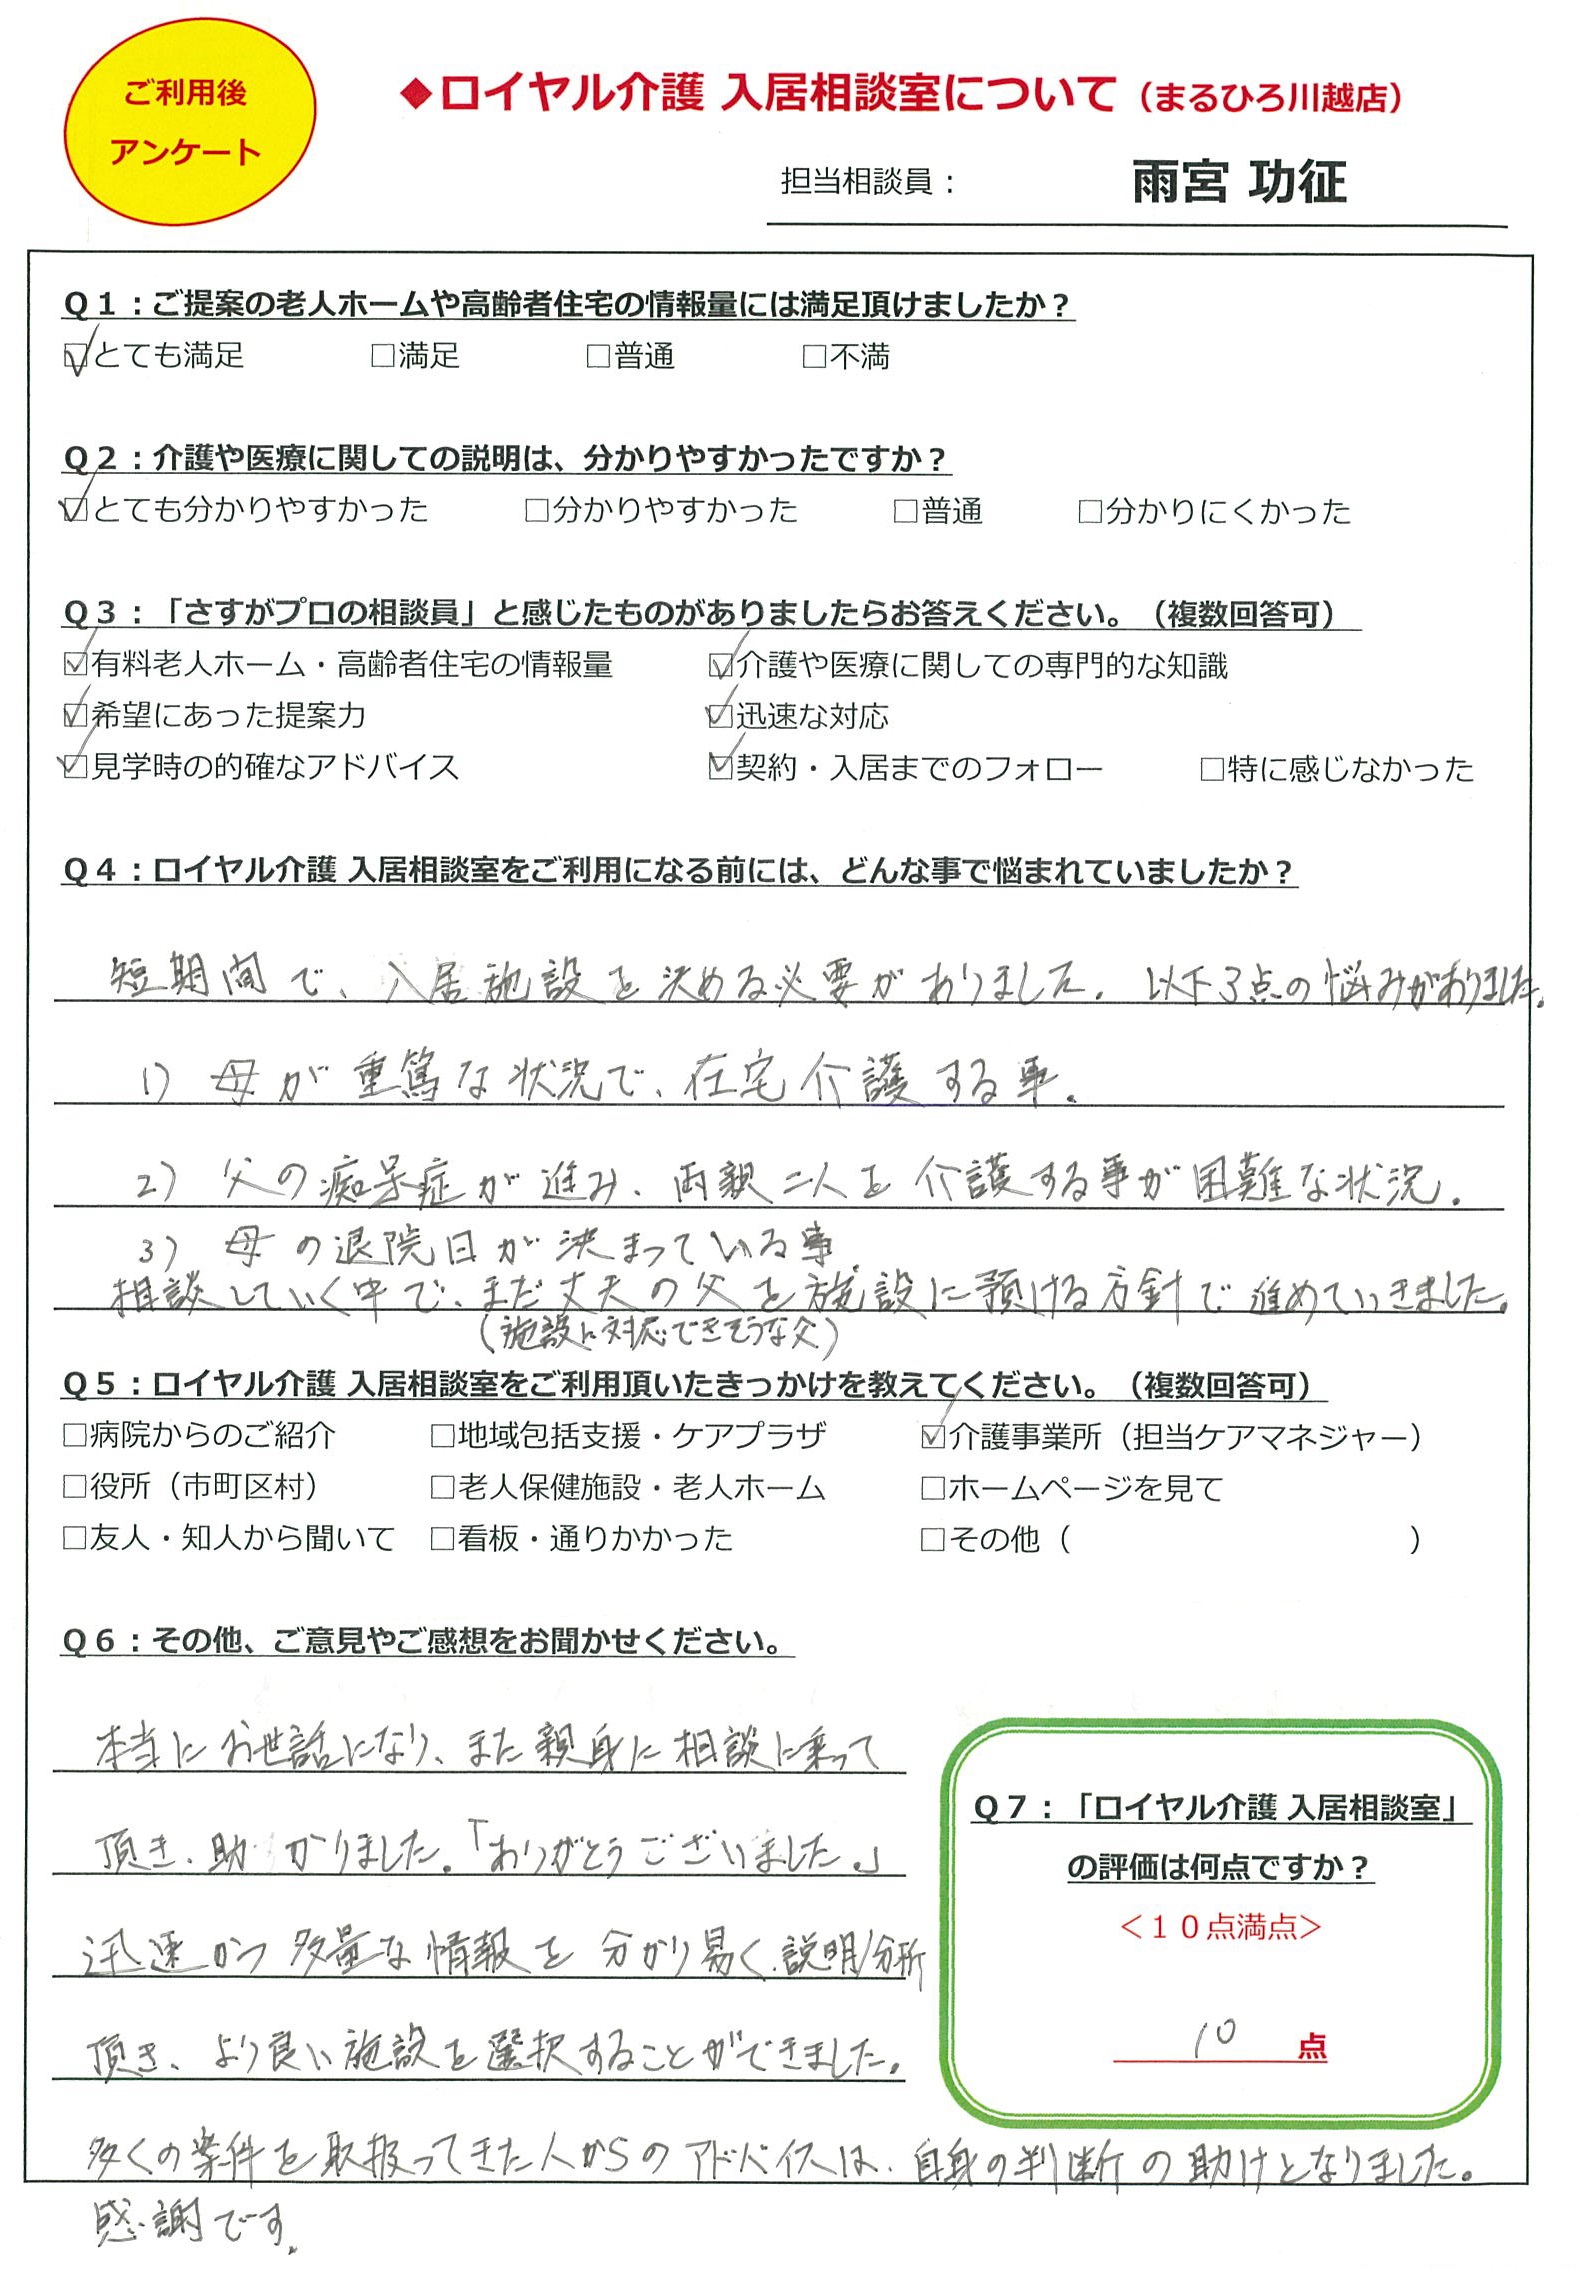 ご利用後
アンケート
◆ロイヤル介護 入居相談室について（まるひろ川越店）
担当相談員： 雨宮 功征
Q１：ご提案の老人ホームや高齢者住宅の情報量には満足頂けましたか？
☑とても満足 □満足 □普通 □不満
Q２：介護や医療に関しての説明は、分かりやすかったですか？
☑とても分かりやすかった □分かりやすかった □普通 □分かりにくかった
Q３：「さすがプロの相談員」と感じたものがありましたらお答えください。（複数回答可）
☑有料老人ホーム・高齢者住宅の情報量 ☑介護や医療に関しての専門的な知識
☑希望にあった提案力 ☑迅速な対応
☑見学時の的確なアドバイス ☑契約・入居までのフォロー □特に感じなかった
Q４：ロイヤル介護 入居相談室をご利用になる前には、どんな事で悩まれていましたか？
短期間で、入居施設を決める必要がありました。以下3点の悩みがありました。
1) 母が重篤な状況で、在宅介護する事。
2) 父の痴呆症が進み、両親二人を介護する事が困難な状況。
3) 母の退院日が決まっている事。
相談していく中で、まだ丈夫の父を施設に預ける方針で進めていきました。
（施設に対応できそうな父）
Q５：ロイヤル介護 入居相談室をご利用頂いたきっかけを教えてください。（複数回答可）
□病院からのご紹介 □地域包括支援・ケアプラザ ☑介護事業所（担当ケアマネジャー）
□役所（市町区村） □老人保健施設・老人ホーム □ホームページを見て
□友人・知人から聞いて □看板・通りかかった □その他（ ）
Q６：その他、ご意見やご感想をお聞かせください。
本当にお世話になり、また親身に相談に乗って
頂き、助かりました。「ありがとうございました。」
迅速かつ多量な情報を分かり易く、説明/分析
頂き、より良い施設を選択することができました。
多くの案件を取扱ってきた人からのアドバイスは、自身の判断の助けとなりました。
感謝です。
Q７：「ロイヤル介護 入居相談室」
の評価は何点ですか？
＜１０点満点＞
10 点